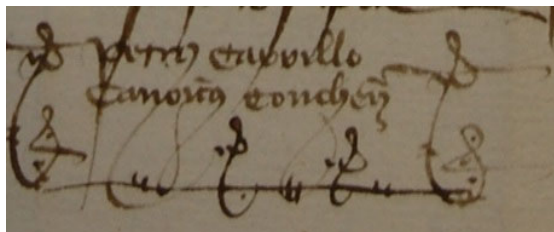 petrus carrillo
canonicus conchen̄